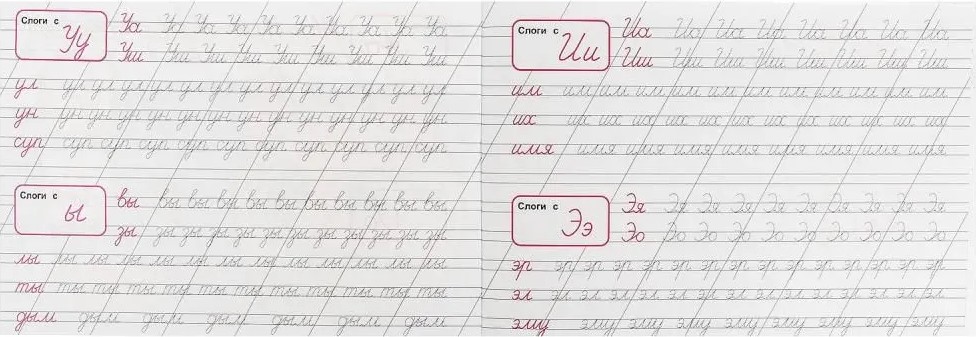 Слоги с Уу
Уа Уа Уа Уа Уа Уа Уа Уа Уа Уа
Уи Уи Уи Уи Уи Уи Уи Уи Уи
ул ул ул ул ул ул ул ул ул ул ул ул ул ул
ун ун ун ун ун ун ун ун ун ун ун ун ун ун
суп суп суп суп суп суп суп суп суп суп суп
Слоги с ы
вы вы вы вы вы вы вы вы вы вы вы
зы зы зы зы зы зы зы зы зы зы зы зы
лы лы лы лы лы лы лы лы лы лы лы лы лы
ты ты ты ты ты ты ты ты ты ты ты ты
дым дым дым дым дым дым дым
Слоги с Ии
Иа Иа Иа Иа Иа Иа Иа Иа
Ии Ии Ии Ии Ии Ии Ии Ии
им им им им им им им им им им им им
их их их их их их их их их их их их
имя имя имя имя имя имя имя имя имя
Слоги с Ээ
Эя Эя Эя Эя Эя Эя Эя Эя Эя Эя
Эо Эо Эо Эо Эо Эо Эо Эо Эо Эо
эр эр эр эр эр эр эр эр эр эр эр эр эр эр эр
эл эл эл эл эл эл эл эл эл эл эл эл эл эл эл
эму эму эму эму эму эму эму эму эму